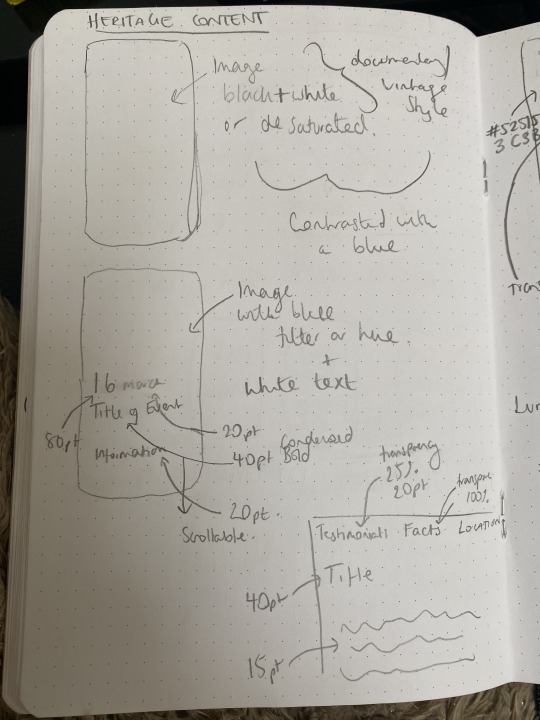 HERITAGE CONTENT
Image
black + white
or desaturated
documentary/
vintage
style
Contrasted with
a blue
Image
with blue
filter or hue.
+
White text
16 march
Title of Event
Information
80pt
20pt
40pt Condensed
Bold
20pt.
Scrollable.
transparency
25%
20pt
100%
Testimonials Facts Location
Title
40pt
15pt